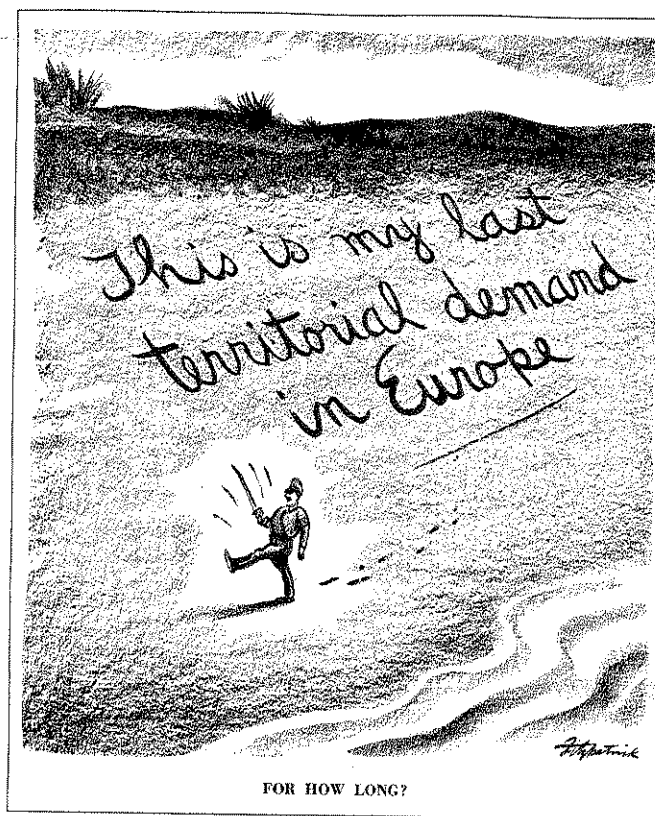 This is my last
territorial demand
in Europe
Fitzpatrick
FOR HOW LONG?